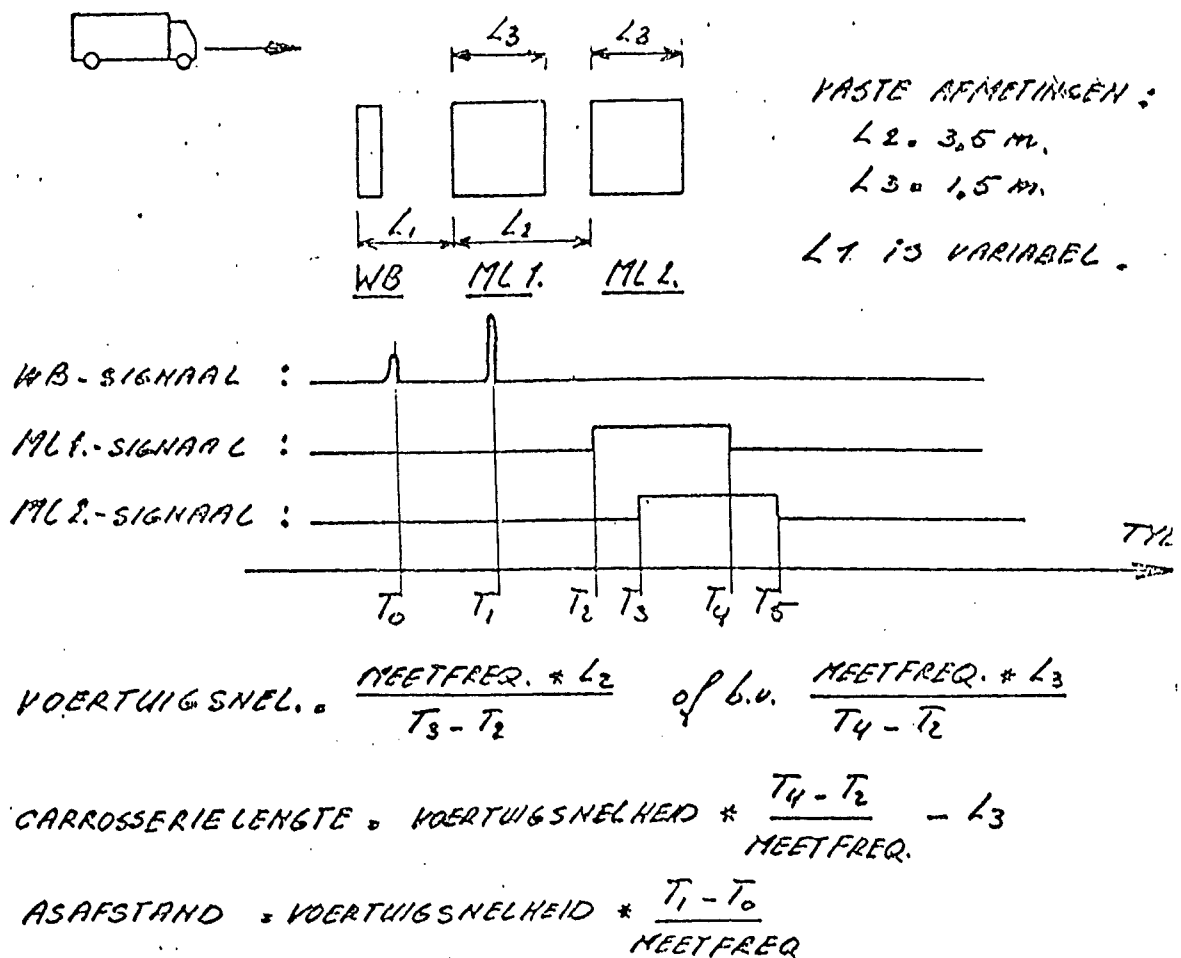 L3 L3
VASTE AFMETINGEN :
L2 = 3,5 m.
L3 = 1,5 m.
L1 L2
L1 is VARIABEL.
WB ML1. ML2.
WB-SIGNAAL :
ML1.-SIGNAAL :
ML2.-SIGNAAL :
T0 T1 T2 T3 T4 T5
VOERTUIGSNEL. = MEETFREQ. * L2 / T3 - T2 of b.v. MEETFREQ. * L3 / T4 - T2
CARROSSERIELENGTE = VOERTUIGSNELHEID * T4 - T2 / MEETFREQ. - L3
ASAFSTAND = VOERTUIGSNELHEID * T1 - T0 / MEETFREQ